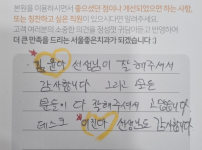 본원을 이용하시면서 좋으셨던 점이나 개선되었으면 하는 사항,
또는 칭찬하고 싶은 직원이 있으시다면 알려주세요.
고객 여러분의 소중한 의견을 정성껏 귀담아듣고 반영하여
더 큰 만족을 드리는 서울좋은치과가 되겠습니다 :)
김윤아 선생님이 잘해주셔서
감사합니다 그리고 모든
분들이 다 잘해주셔서 고맙습니다
데스크 이진아 선생님도 감사합니다